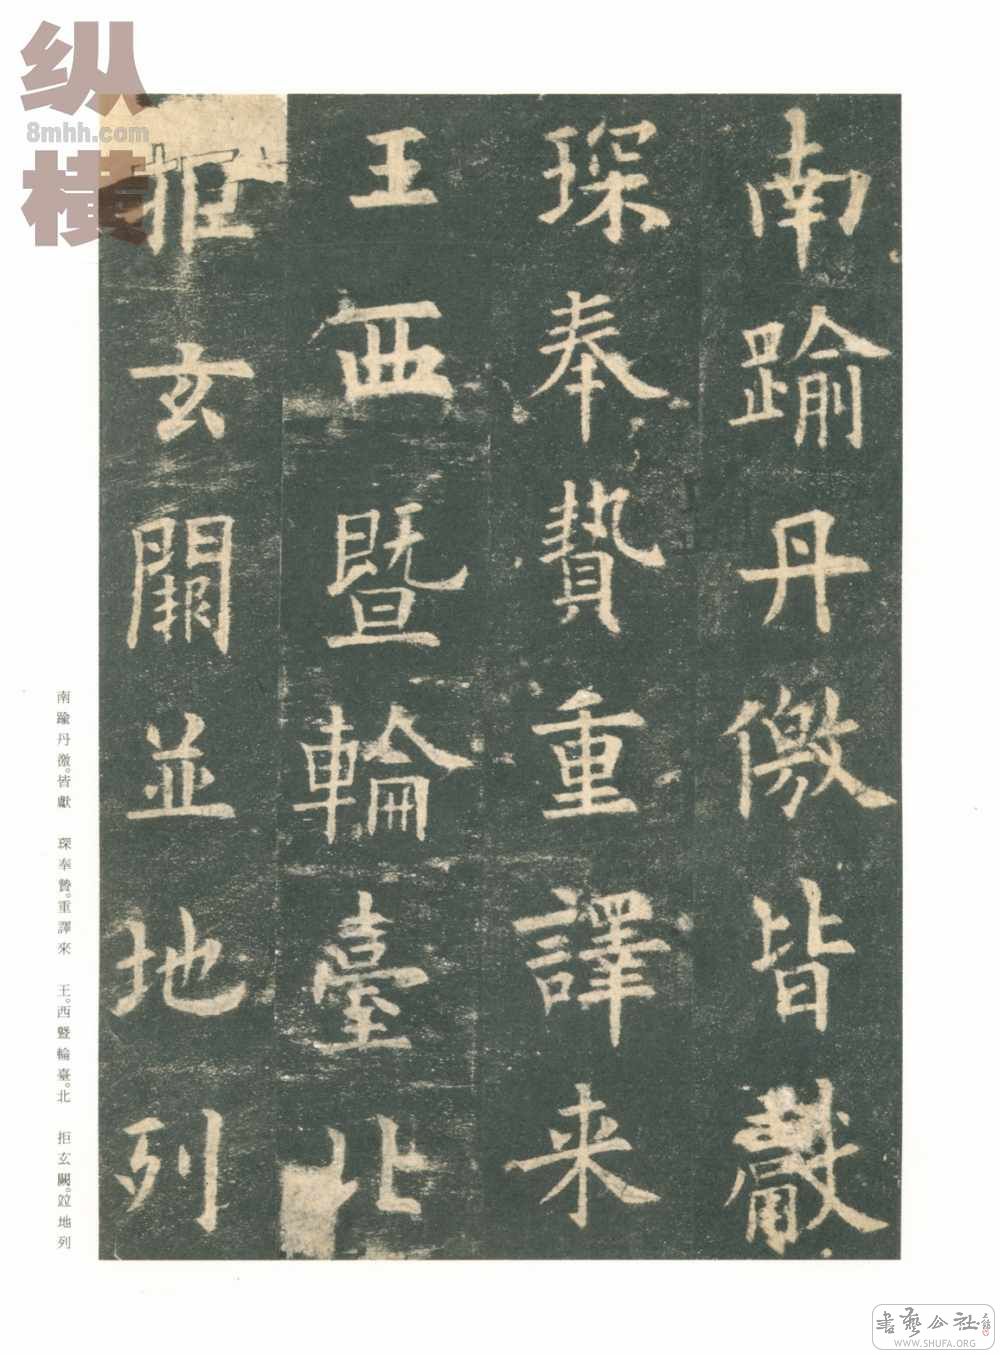 南踰丹徼皆獻
琛奉贄重譯来
王西暨輪臺北
拒玄闕並地列
南踰丹徼。皆獻　琛奉贄。重譯來　王。西暨輪臺。北　拒玄闕。竝地列
纵横
8mhh.com
書藝公社
WWW.SHUFA.ORG